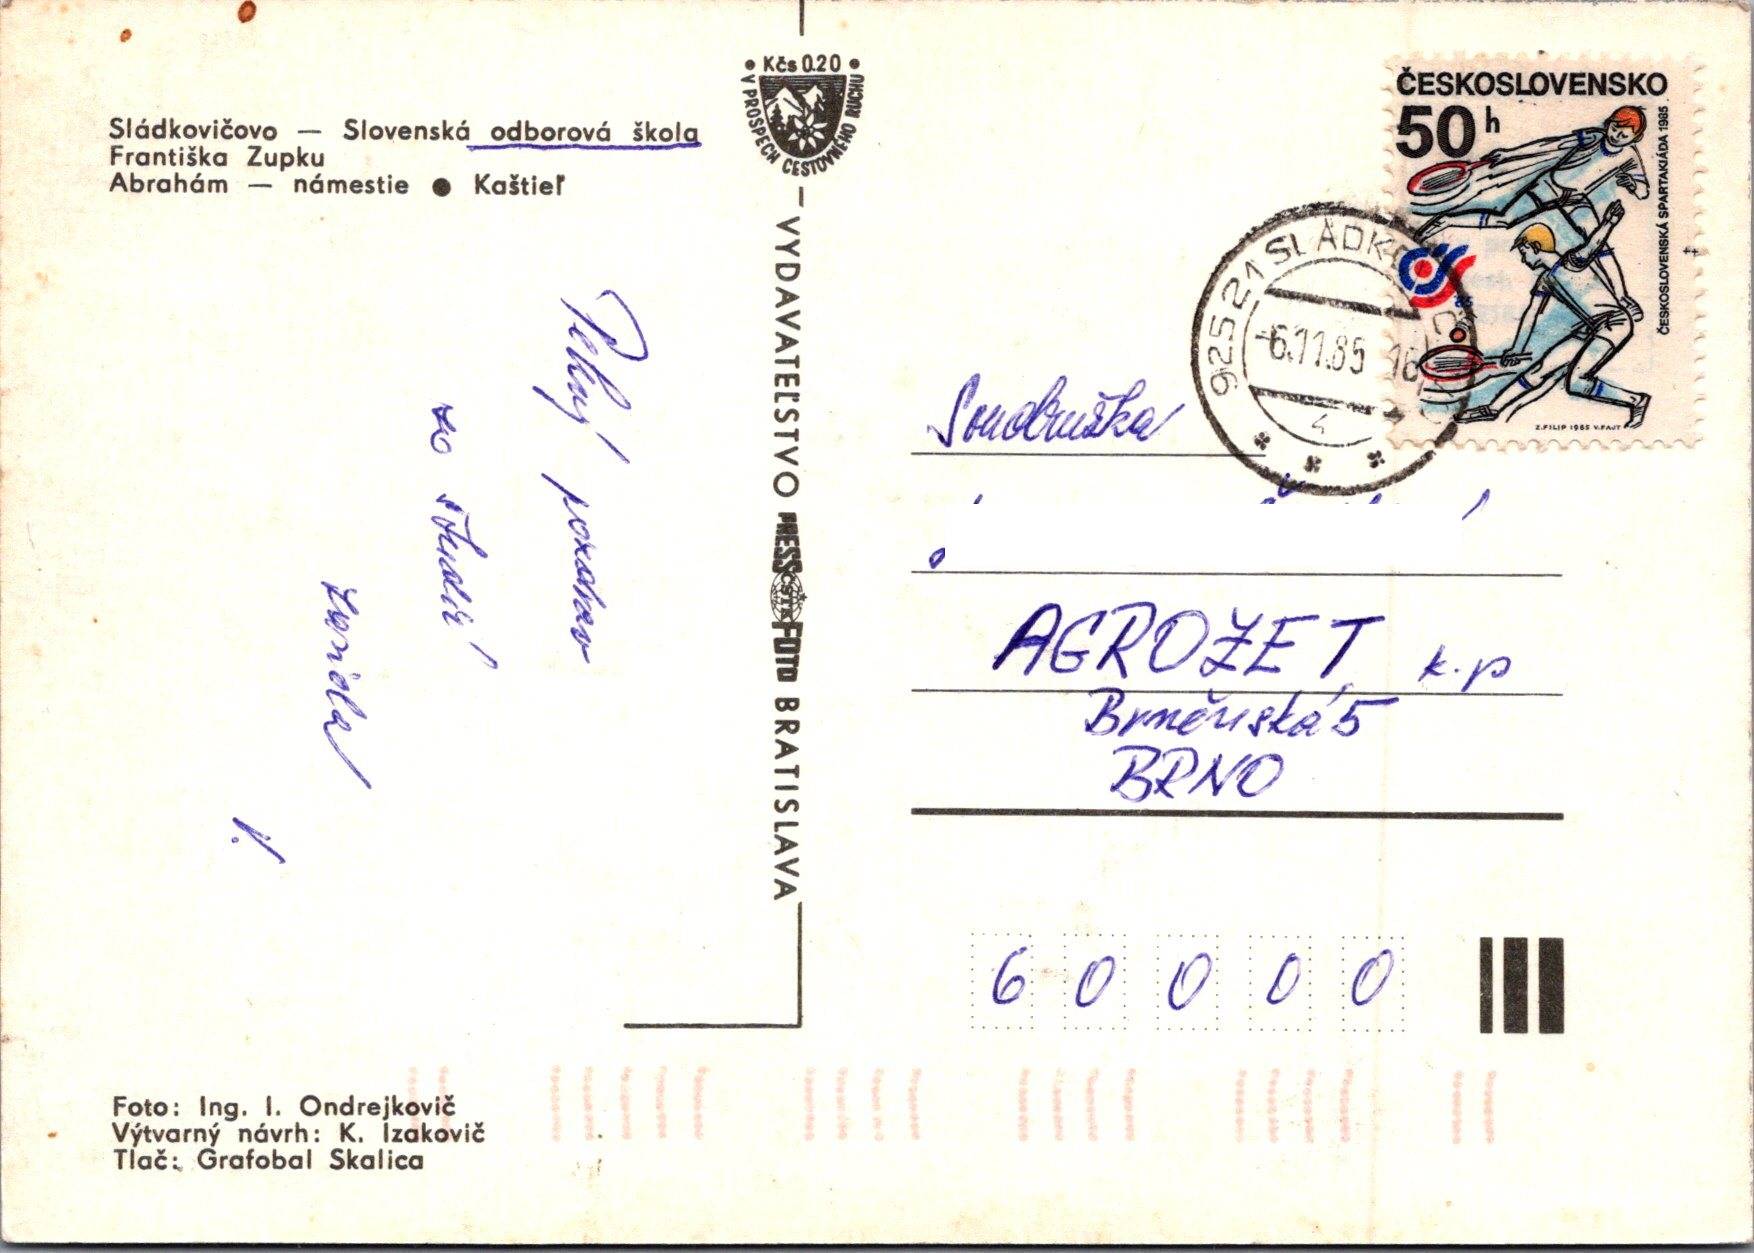 Sládkovičovo — Slovenská odborová škola
Františka Zupku
Abrahám — námestie ● Kaštieľ
• Kčs 0.20 •
V PROSPECH CESTOVNÉHO RUCHU
VYDAVATEĽSTVO PRESSFOTO BRATISLAVA
ČSTK
ČESKOSLOVENSKO
50 h
ČESKOSLOVENSKÁ SPARTAKIÁDA 1985
85
Z.FILIP 1985 V.FAJT
92521 SLÁDK
-6.11.85 16
2
Pěkný pozdrav
ze
Soudružka
AGROZET k.p
Brněnská 5
BRNO
6 0 0 0 0
Foto: Ing. I. Ondrejkovič
Výtvarný návrh: K. Izakovič
Tlač: Grafobal Skalica